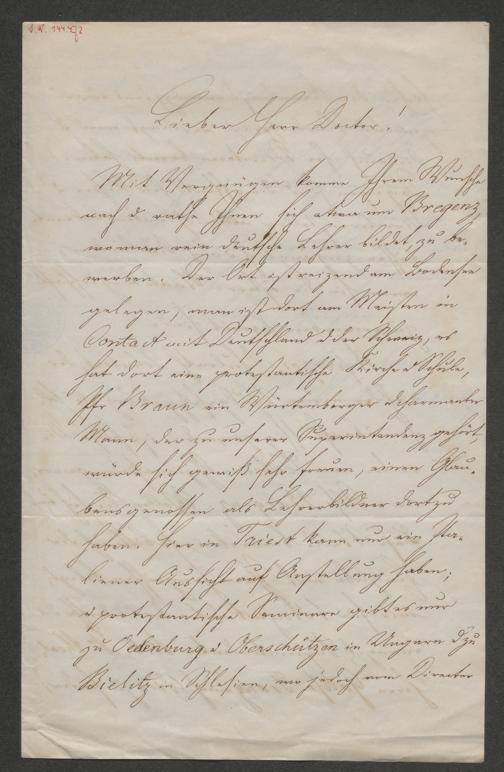 J. N. 144.492
Lieber Herr Doctor!
Mit Vergnügen komme Ihrem Wunsche
nach & rathe Ihnen sich etwa um Bregenz,
wo man rein deutsche Lehrer bildet, zu be-
werben. Der Ort ist reizend am Bodensee
gelegen, man ist dort am Meisten in
Contact mit Deutschland & der Schweiz, es
hat dort eine protestantische Kirche & Schule,
Pfr Braun ein Würtemberger & charmanter
Mann, der zu unserer Superintendenz gehört
würde sich gewiß sehr freuen, einen Glau-
bensgenossen als Lehrerbildner dort zu
haben. Hier in Triest kann nur ein Ita-
liener Aussicht auf Anstellung haben;
protestantische Seminare gibt es nur
zu Oedenburg & Oberschützen in Ungarn & zu
Bielitz in Schlesien, wo jedoch vom Director